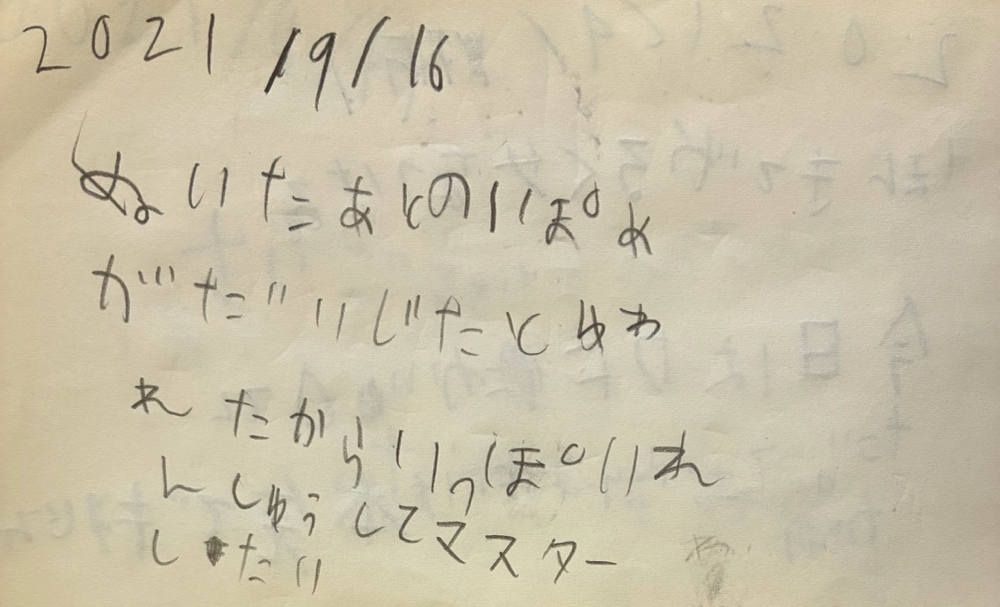 2021/9/16
ぬいたあとのいぽぬ
がだいじたとゆわ
れたからいっぽいれ
んしゅうしてマスター
したい